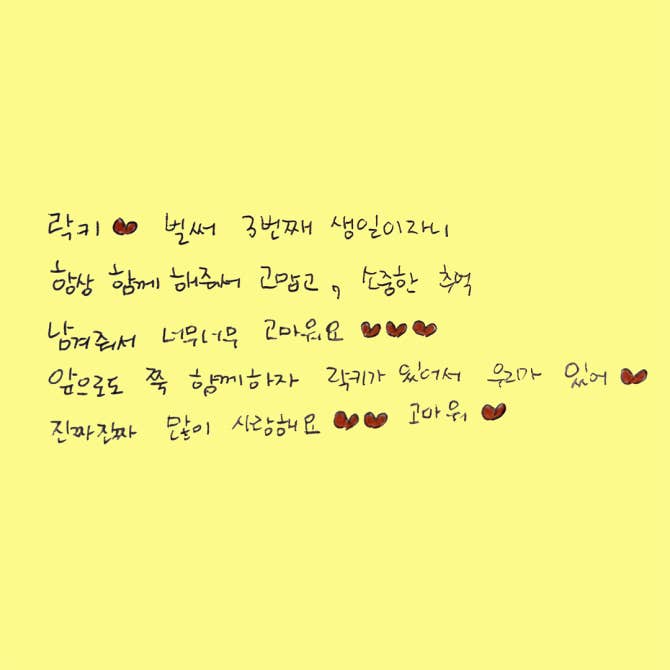 락키 ❤ 벌써 3번째 생일이자니
항상 함께 해줘서 고맙고, 소중한 추억
남겨줘서 너무너무 고마워요 ❤❤❤
앞으로도 쭉 함께하자 락키가 있어서 우리가 있어 ❤
진짜진짜 많이 사랑해요 ❤❤ 고마워 ❤